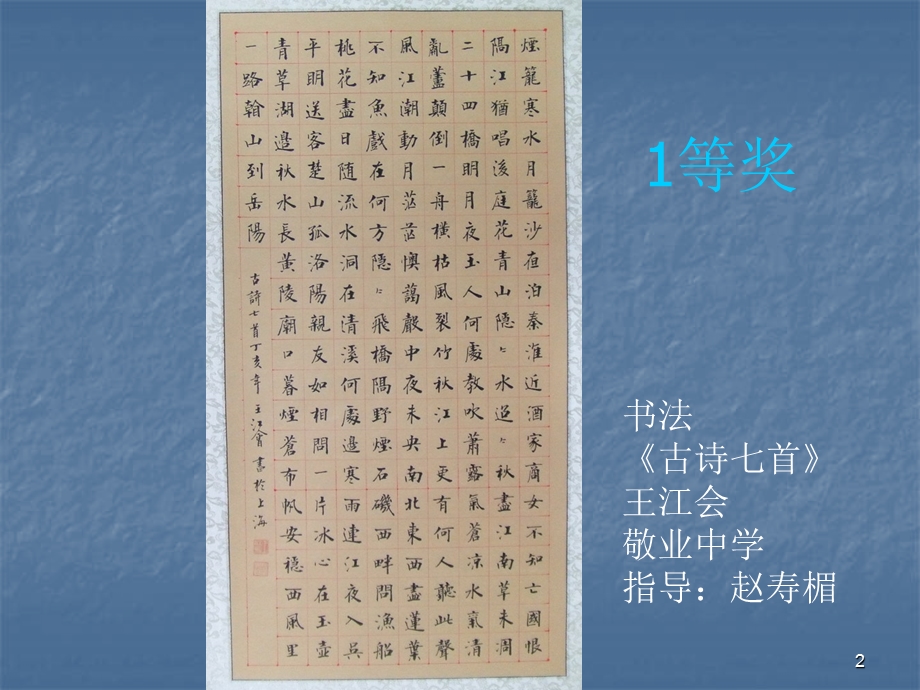 1等奖
煙籠寒水月籠沙夜泊秦淮近酒家商女不知亡國恨
隔江猶唱後庭花青山隱〻水迢〻秋盡江南草未凋
二十四橋明月夜玉人何處教吹簫露氣蒼涼水氣清
亂蘆顛倒一舟橫枯風裂竹秋江上更有何人聽此聲
風江潮動月茫茫懊藹中夜未央南北東西盡蓮葉
不知魚戲在何方隱〻飛橋隔野煙石磯西畔問漁船
桃花盡日隨流水洞在清溪何處邊寒雨連江夜入吳
平明送客楚山孤洛陽親友如相問一片冰心在玉壺
青草湖邊秋水長黃陵廟口暮煙蒼布帆安穩西風里
一路翰山到岳陽
古詩七首丁亥年王江會書於上海
书法
《古诗七首》
王江会
敬业中学
指导：赵寿楣
2